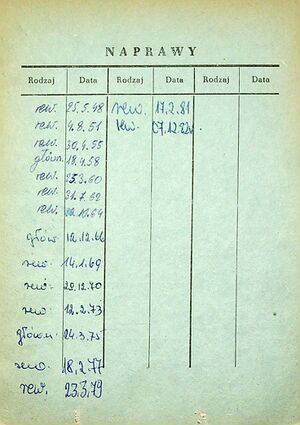 NAPRAWY
Rodzaj Data Rodzaj Data Rodzaj Data
rew. 25.5.48 rew. 17.2.81
rew. 4.8.51 rew. 07.12.82r.
rew. 30.4.55
główn. 18.4.58
rew. 25.3.60
rew. 31.7.62
rew. 10.64
główn. 12.12.66
rew. 14.1.69
rew. 20.12.70
rew. 12.2.73
główn. 24.3.75
rew. 18.2.77
rew. 23.3.79